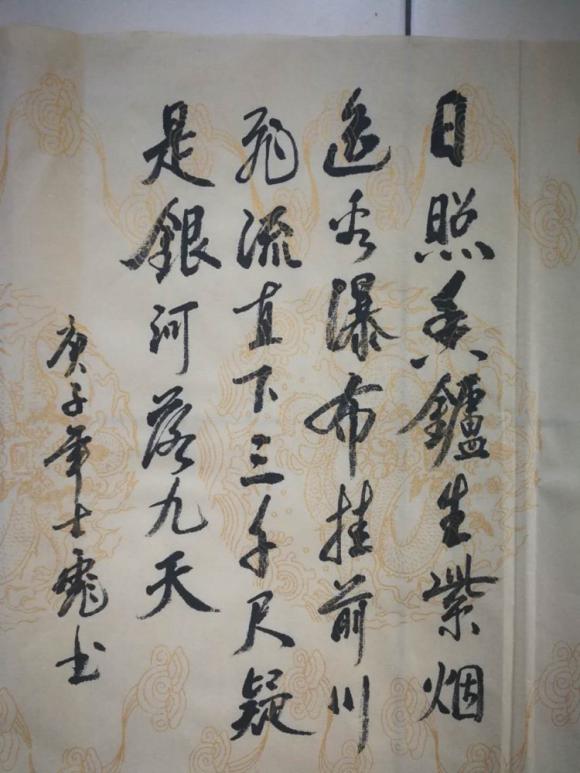 日照香鑪生紫烟
遥看瀑布挂前川
飛流直下三千尺疑
是銀河落九天
庚子年士书